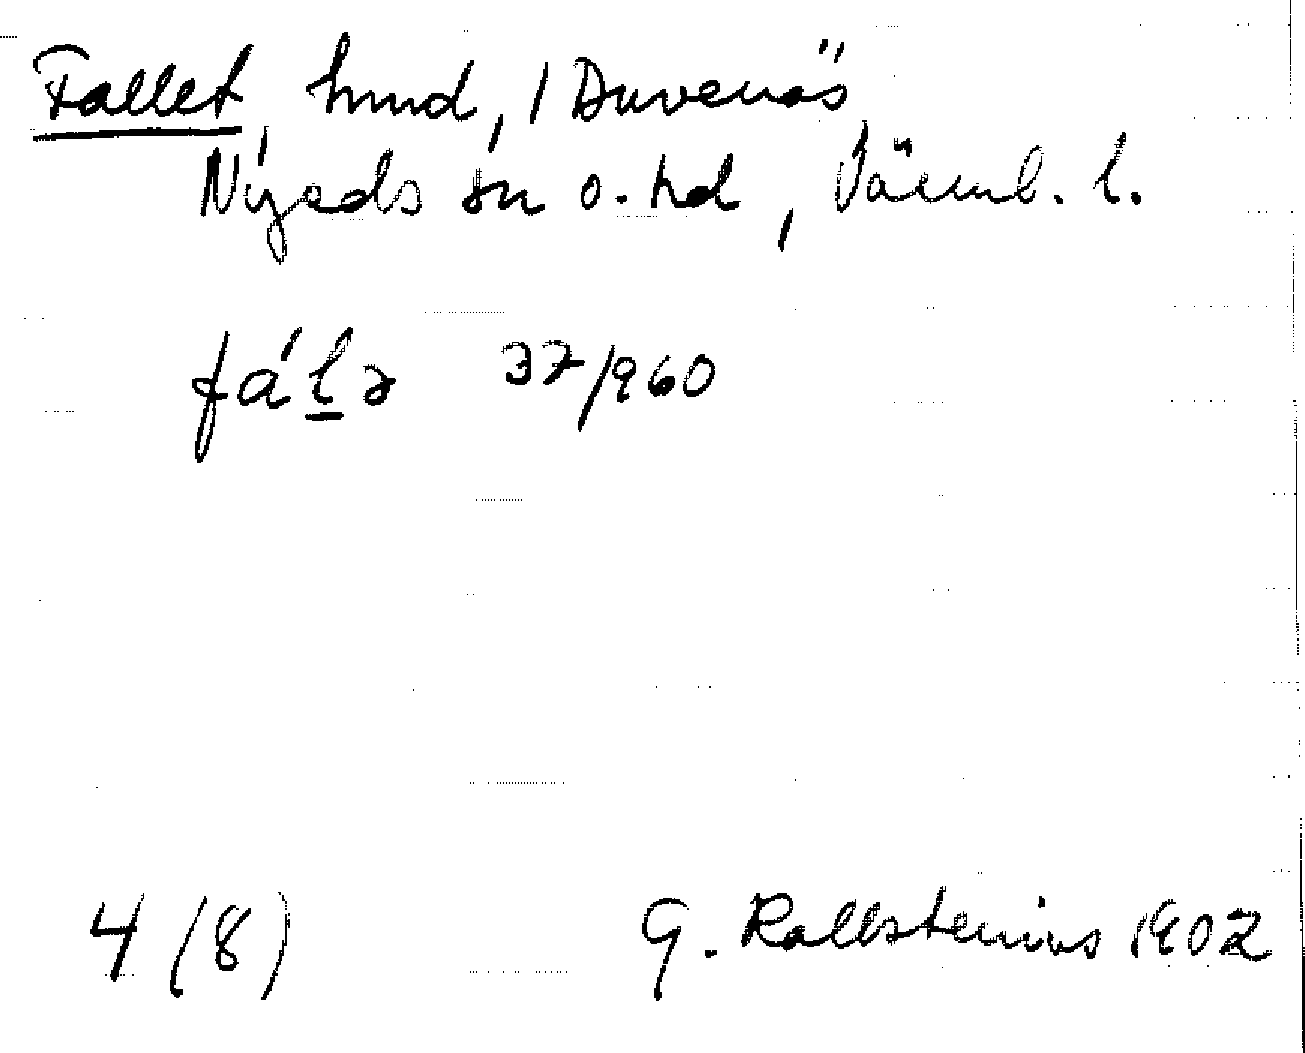 Fallet, hmd, / Duvenäs
Nyeds sn o. hd, Värml. l.
fáḻə 37/960
4 (8)
G. Kallstenius 1902